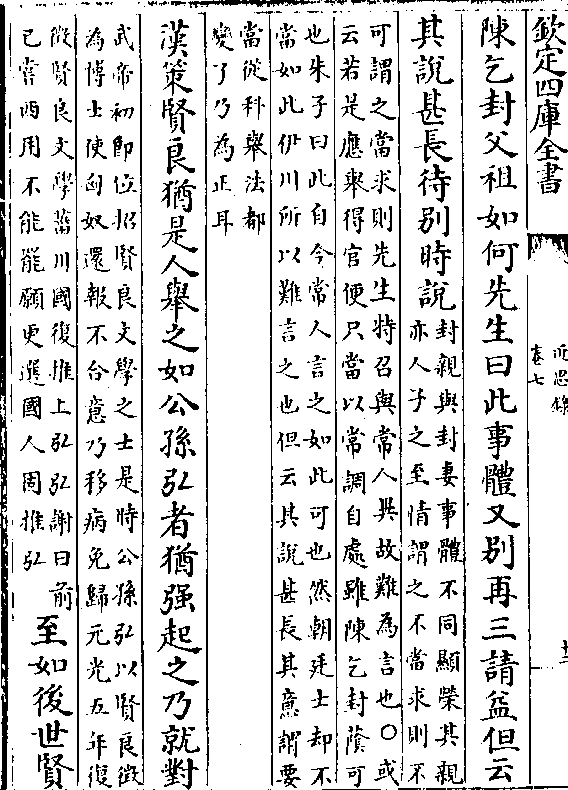 欽定四庫全書
近思錄
卷七
陳乞封父祖如何先生曰此事體又别再三請益但云
其說甚長待别時說封親與封妻事體不同顯榮其親
亦人子之至情謂之不當求則不
可謂之當求則先生特召與常人異故難為言也○或
云若是應舉得官便只當以常調自處雖陳乞封蔭可
也朱子曰此自今常人言之如此可也然朝廷士却不
當如此伊川所以難言之也但云其說甚長其意謂要
當從科舉法都
變了乃為正耳
漢策賢良猶是人舉之如公孫弘者猶强起之乃就對
武帝初即位招賢良文學之士是時公孫弘以賢良徵
為博士使匈奴還報不合意乃移病免歸元光五年復
徵賢良文學菑川國復推上弘弘謝曰前
已嘗西用不能罷願更選國人固推弘
至如後世賢